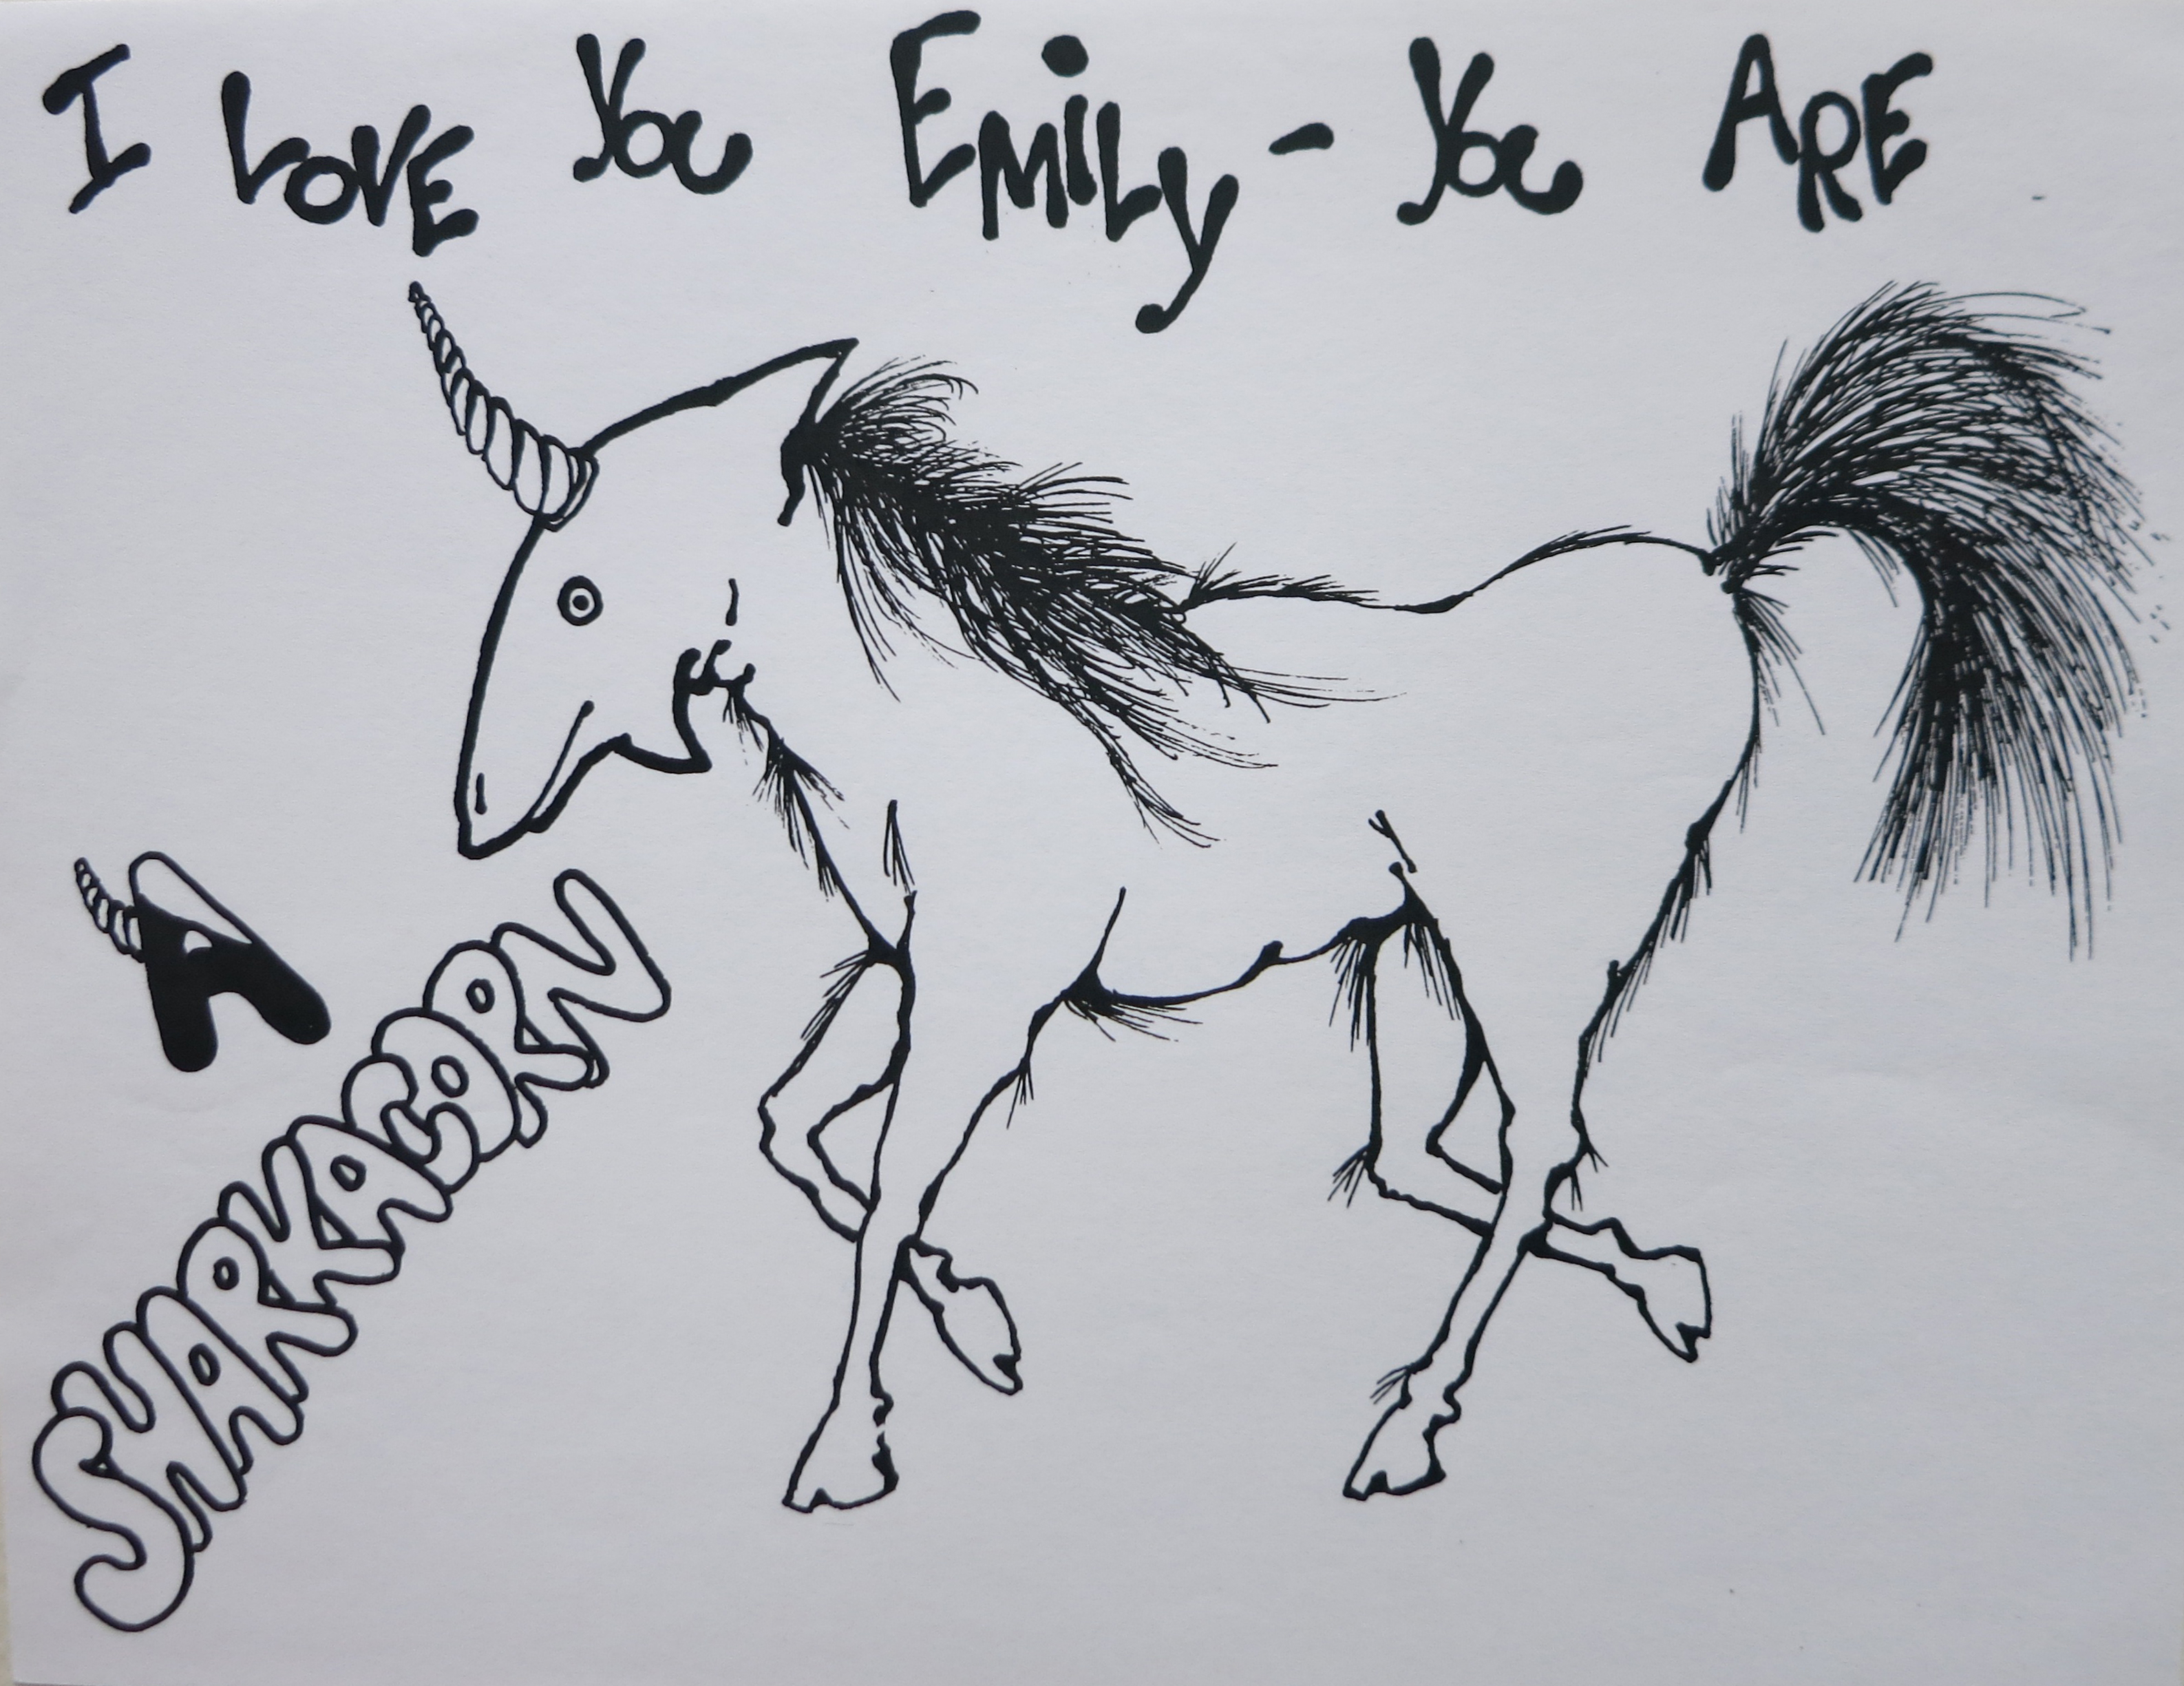 I LOVE YOU EMiLy - YOU ARE
A
SHARKACORN